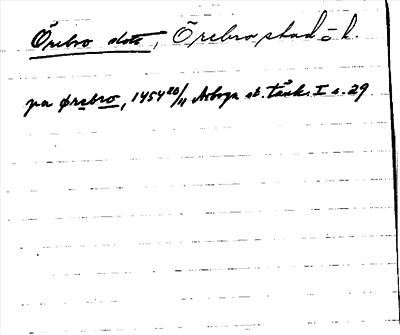 Örebro slott, Örebro stad o. l.
pa ørebro, 1454 20/11 Arboga st. tänk. I s. 29